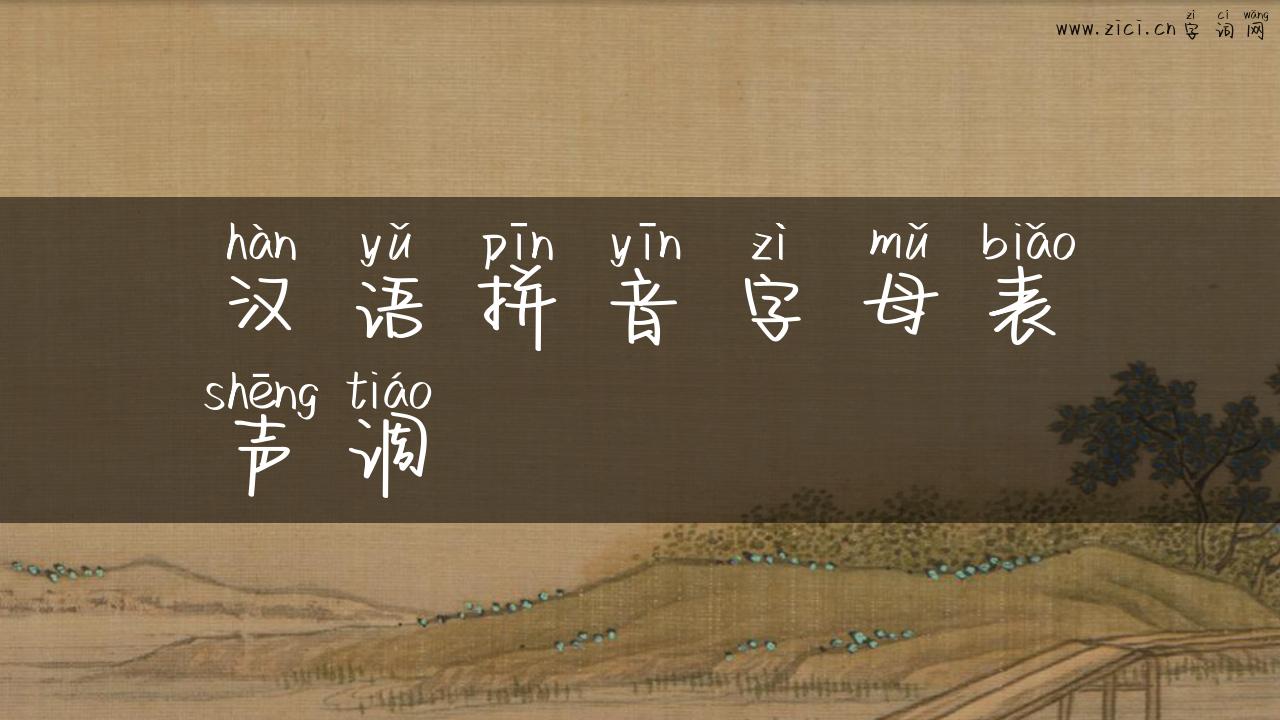 zì cí wǎng
www.zici.cn 字词网
hàn yǔ pīn yīn zì mǔ biǎo
汉语拼音字母表
shēng tiáo
声调